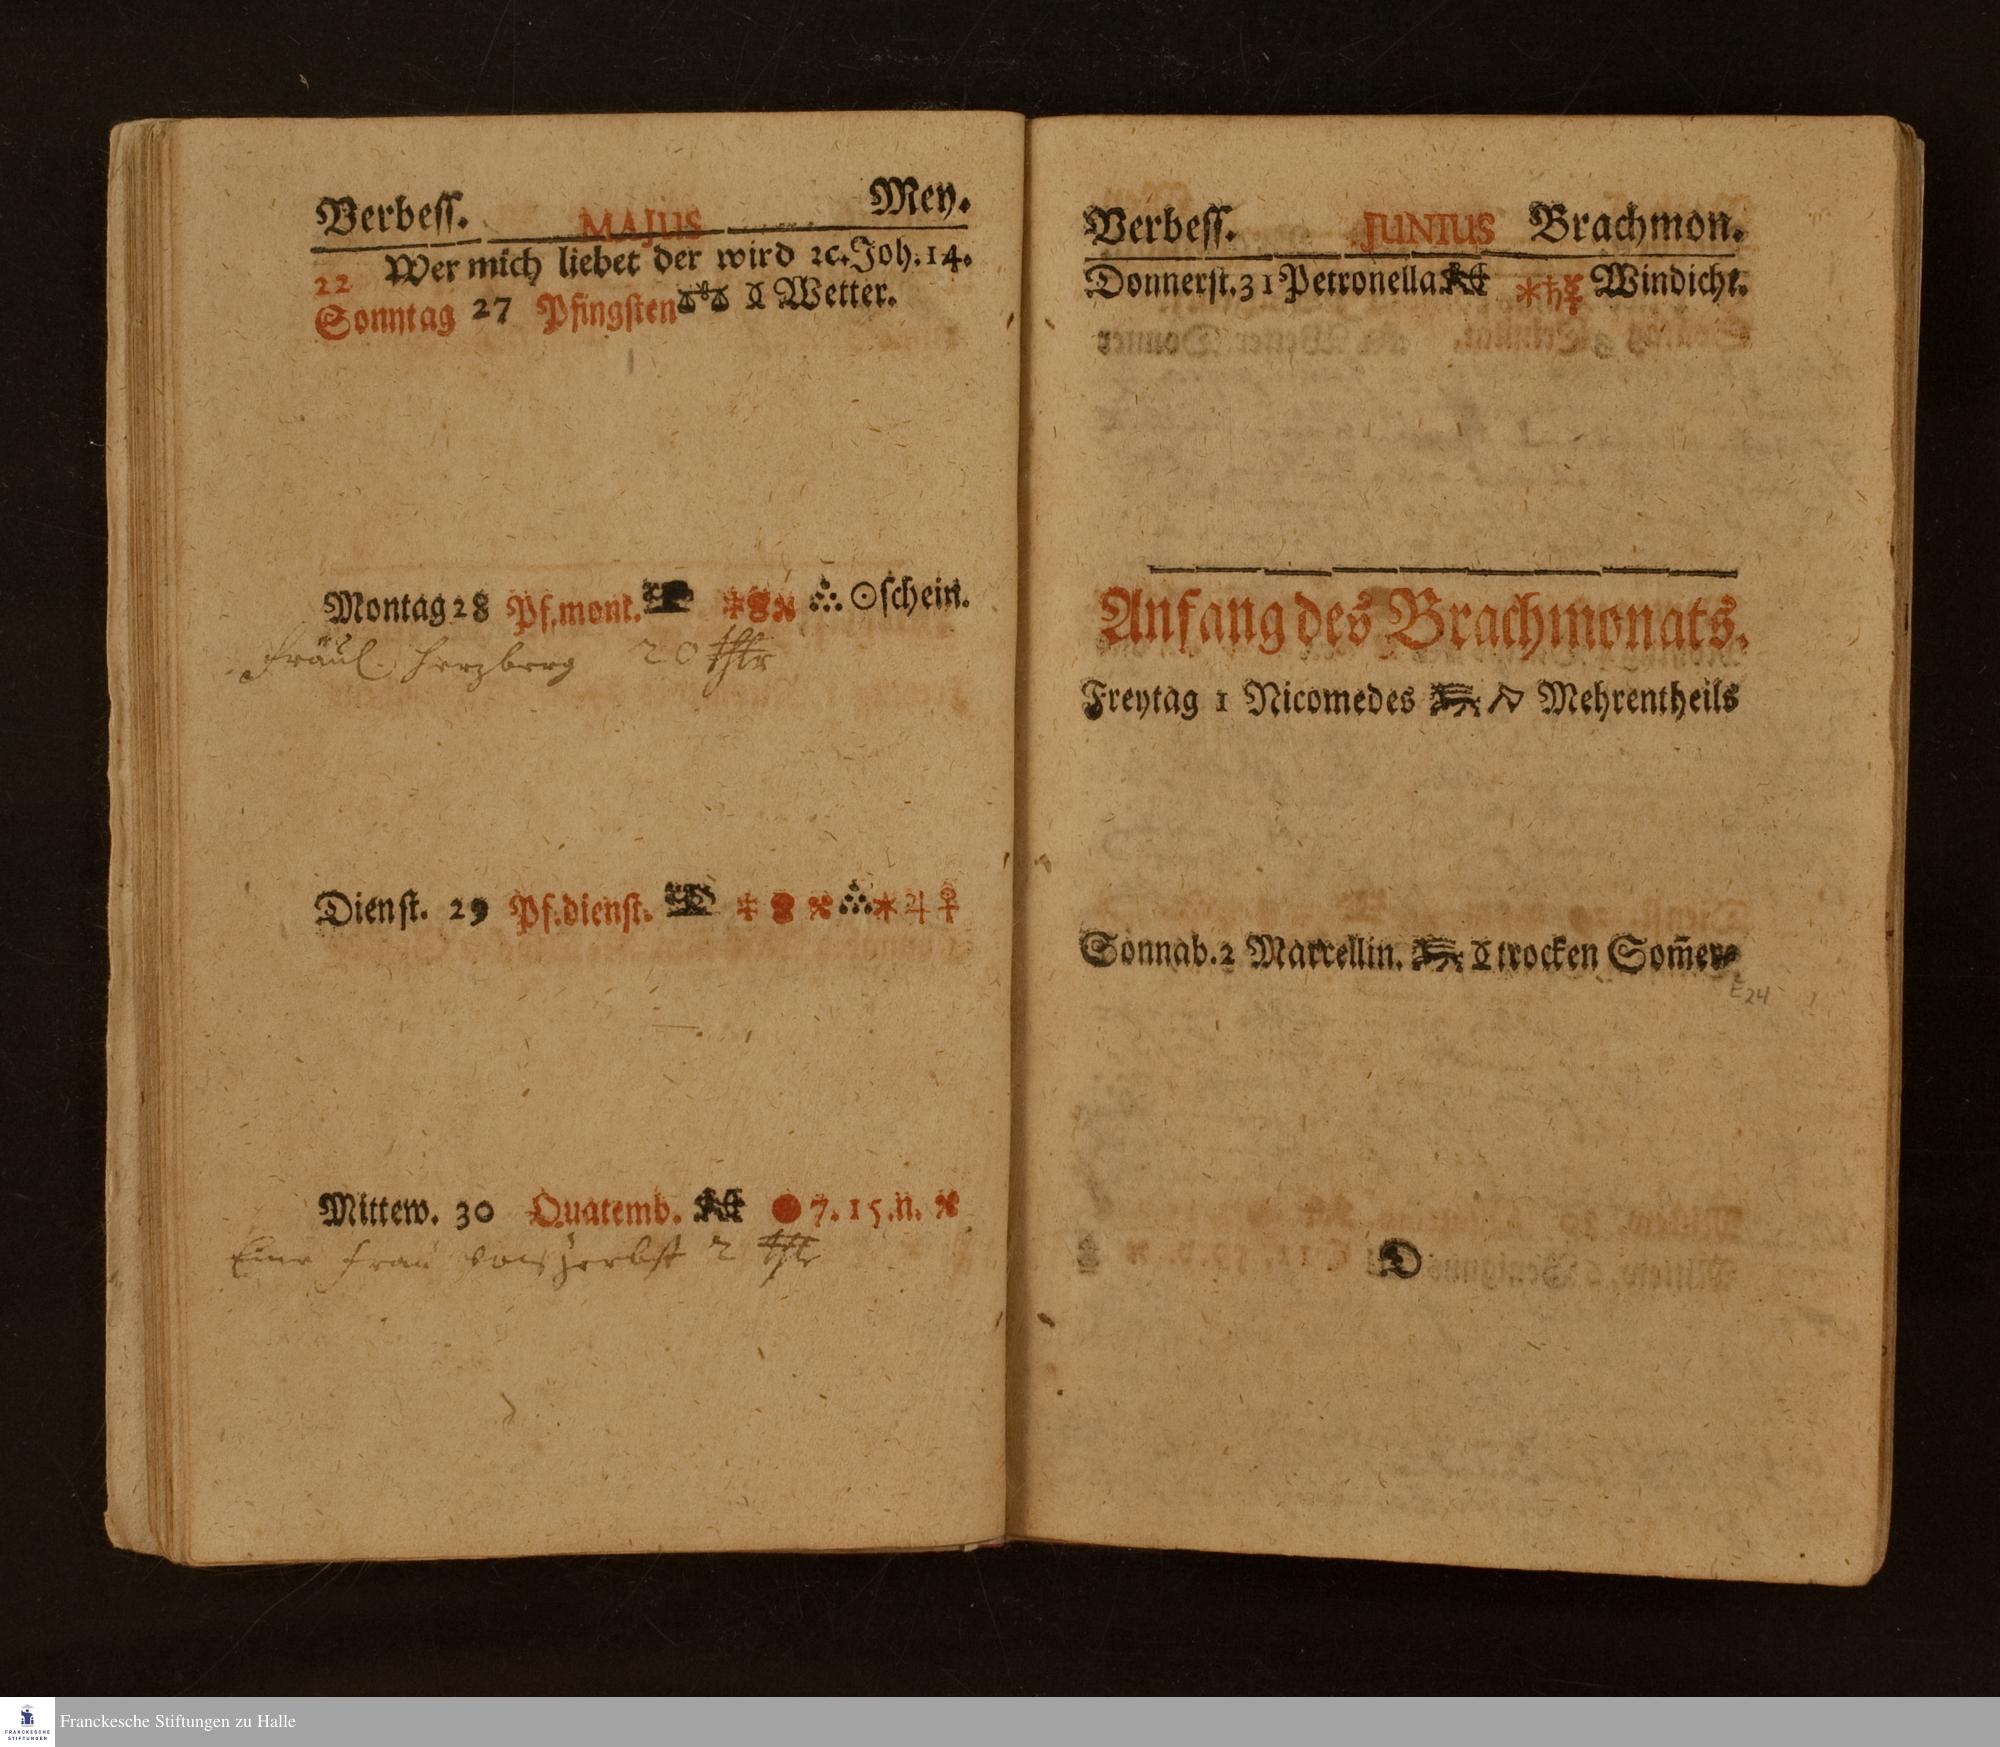 Verbess. MAJUS Mey.
Wer mich liebet der wird ꝛc. Joh. 14.
22
Sonntag 27 Pfingsten Wetter.
Montag 28 Pf. mont. ☉schein.
Fräul. Herzberg 20 thlr
Dienst. 29 Pf. dienst. ⚹ ♃ ☿
Mittew. 30 Quatemb. 7. 15. n.
Eine Frau von Zerbst 2 thlr
Verbess. JUNIUS Brachmon.
Donnerst. 31 Petronella ⚹ ♄ ☿ Windicht.
Anfang des Brachmonats.
Freytag 1 Nicomedes Mehrentheils
Sonnab. 2 Marcellin. trocken Som̃er⸗
E 24
D
Franckesche Stiftungen zu Halle
FRANCKESCHE
STIFTUNGEN